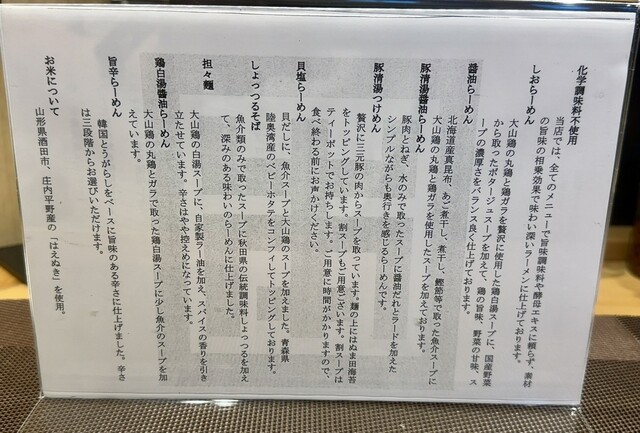 化学調味料不使用
当店では、全てのメニューで旨味調味料や酵母エキスに頼らず、素材
の旨味の相乗効果で味わい深いラーメンに仕上げております。
しおらーめん
大山鶏の丸鶏と鶏ガラを贅沢に使用した鶏白湯スープに、国産野菜
から取ったポタージュスープを加えて、鶏の旨味、野菜の甘味、ス
ープの濃厚さをバランス良く仕上げております。
醤油らーめん
北海道産真昆布、あご煮干し、煮干し、鰹節等で取った魚介スープに
大山鶏の丸鶏と鶏ガラを使用したスープを加えております。
豚清湯醤油らーめん
豚肉とねぎ、水のみで取ったスープに醤油だれとラードを加えた
シンプルながらも奥行きを感じるらーめんです。
豚清湯つけめん
贅沢に三元豚の肉からスープを取っています。麺の上にはぬま田海苔
をトッピングしています。割スープもご用意ございます。割スープは
ティーポットでお持ちします。ご用意に時間がかかりますので、
食べ終わる前にお声かけください。
貝塩らーめん
貝だしに、魚介スープと大山鶏のスープを加えました。青森県
陸奥湾産のベビーホタテをコンフィしてトッピングしております。
しょっつるそば
魚介類のみで取ったスープに秋田県の伝統調味料しょっつるを加え
て、深みのある味わいのらーめんに仕上げました。
担々麺
大山鶏の白湯スープに、自家製ラー油を加え、スパイスの香りを引き
立たせています。辛さはやや控えめになっています。
鶏白湯醤油らーめん
大山鶏の丸鶏とガラで取った鶏白湯スープに少し魚介のスープを加
えています。
旨辛らーめん
韓国とうがらしをベースに旨味のある辛さに仕上げました。辛さ
は三段階からお選びいただけます。
お米について
山形県酒田市、庄内平野産の「はえぬき」を使用。